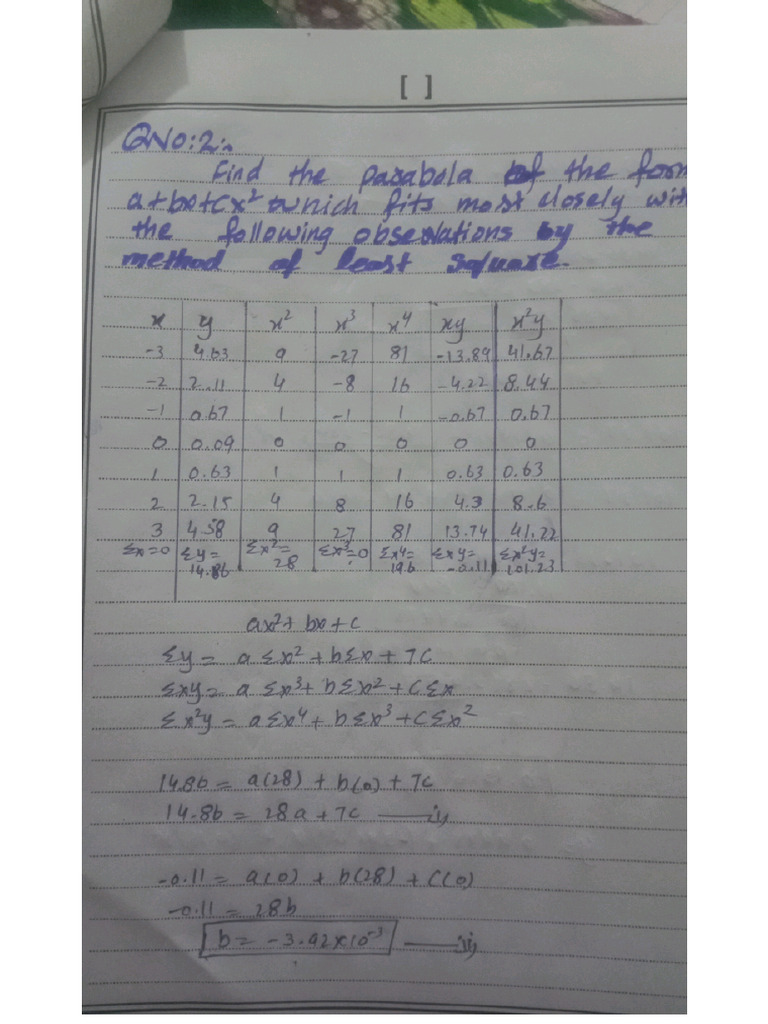 [ ]
QNO:2:-
Find the parabola of the form
a+bx+cx² which fits most closely with
the following observations by the
method of least square.
x y x² x³ x⁴ xy x²y
-3 4.63 9 -27 81 -13.89 41.67
-2 2.11 4 -8 16 -4.22 8.44
-1 0.67 1 -1 1 -0.67 0.67
0 0.09 0 0 0 0 0
1 0.63 1 1 1 0.63 0.63
2 2.15 4 8 16 4.3 8.6
3 4.58 9 27 81 13.74 41.22
Σx=0 Σy=14.86 Σx²=28 Σx³=0 Σx⁴=196 Σxy=-0.11 Σx²y=101.23
ax²+bx+c
Σy = aΣx²+bΣx+7c
Σxy = aΣx³+bΣx²+cΣx
Σx²y = aΣx⁴+bΣx³+cΣx²
14.86 = a(28)+b(0)+7c
14.86 = 28a+7c —(i)
-0.11 = a(0)+b(28)+c(0)
-0.11 = 28b
b = -3.92×10⁻³ —(ii)